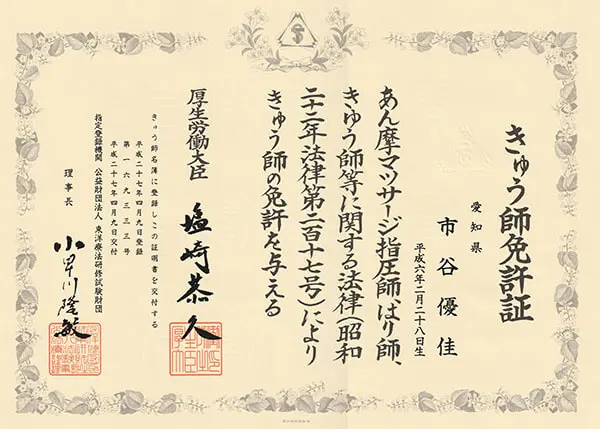 きゅう師免許証
愛知県
市谷優佳
平成六年二月二十八日生
あん摩マツサージ指圧師、はり師、
きゆう師等に関する法律(昭和
二十二年法律第二百十七号)により
きゅう師の免許を与える
厚生労働大臣 塩崎恭久
きゅう師名簿に登録しこの証明書を交付する
平成二十七年四月九日登録
第一六九三三三号
平成二十七年四月九日交付
指定登録機関 公益財団法人 東洋療法研修試験財団
理事長 小早川隆敏